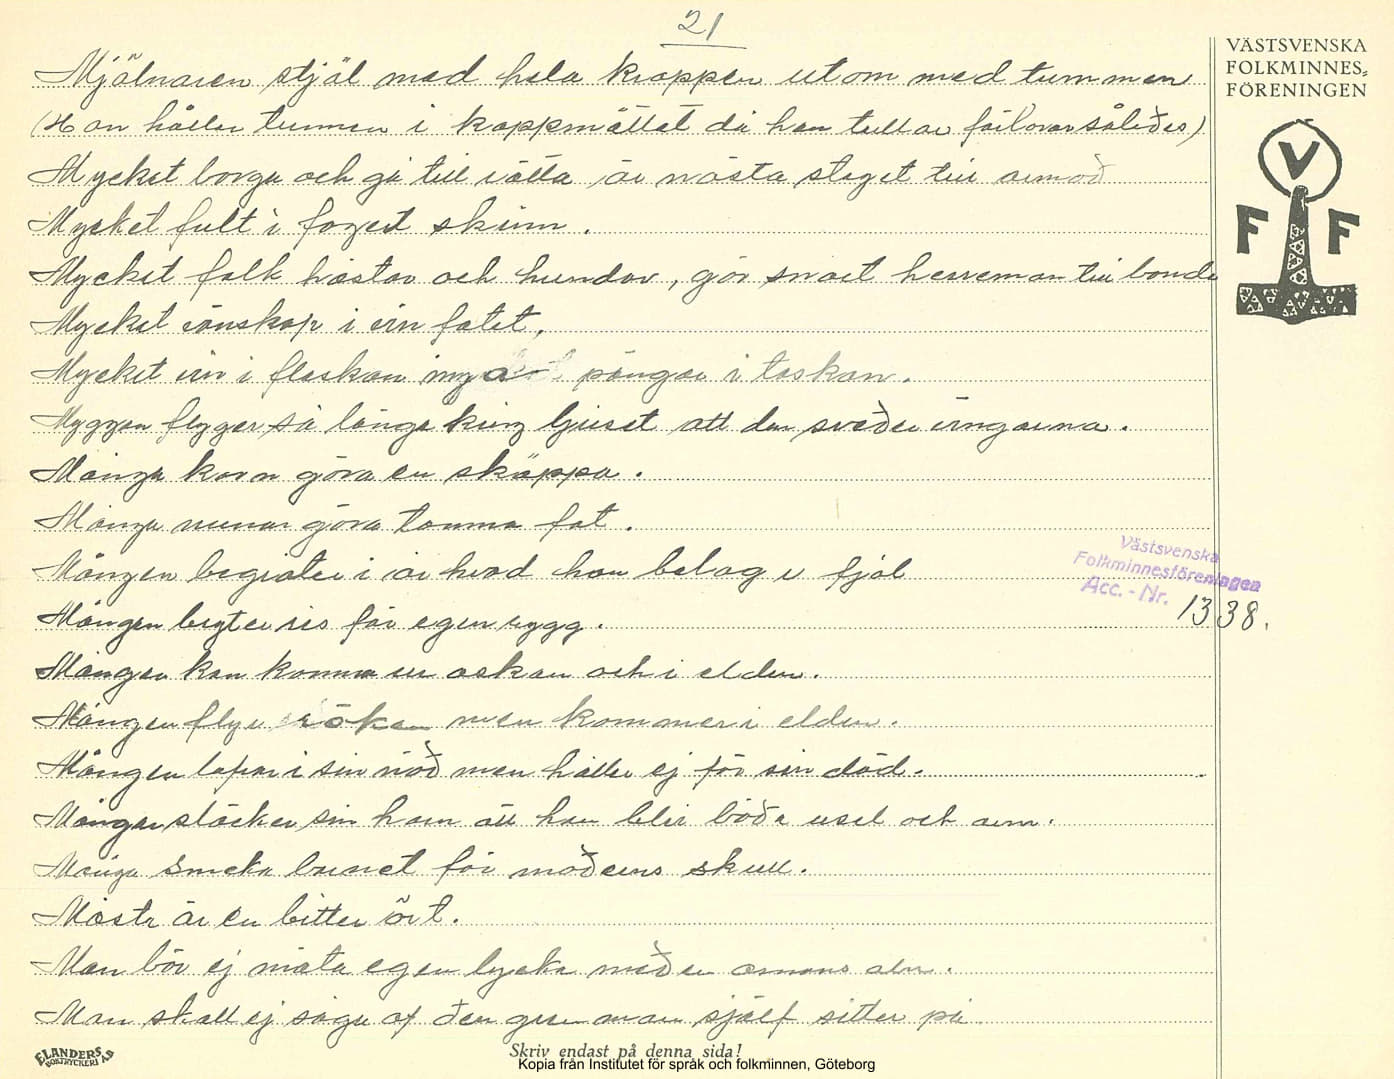 21
VÄSTSVENSKA
FOLKMINNES-
FÖRENINGEN
V
F F
Mjölnaren stjäl med hela kroppen utom med tummen
(Han håller tummen i kappmåttet då han tullar förlorar således)
Mycket borga och gå till rätta är nästa steget till armod
Mycket fult i faget skinn.
Mycket folk hästar och hundar, gör snart herreman till bonde
Mycket ränskap i vin fatet,
Mycket vin i flaskan inga pängar i taskan.
Myggen flyger så länge kring ljuset att den sveder vingarna.
Många korn göra en skäppa.
Många munnar göra tomma fat.
Mången begråter i år hvad han belog i fjol
Mången bryter ris för egen rygg.
Mången kan komma ur askan och i elden.
Mången flyr röken men kommer i elden.
Mången lofvar i sin nöd men håller ej för sin död.
Mången stäcker sin ham att han blir båda usel och arm.
Många smeka barnet för moderns skull.
Måste är en bitter ört.
Man bör ej mäta egen lycka med en annans aln.
Man skall ej såga af den gren man sjelf sitter på
Västsvenska
Folkminnesföreningen
Acc. - Nr. 1338.
ELANDERS
BOKTRYCKERI AB
Skriv endast på denna sida!
Kopia från Institutet för språk och folkminnen, Göteborg